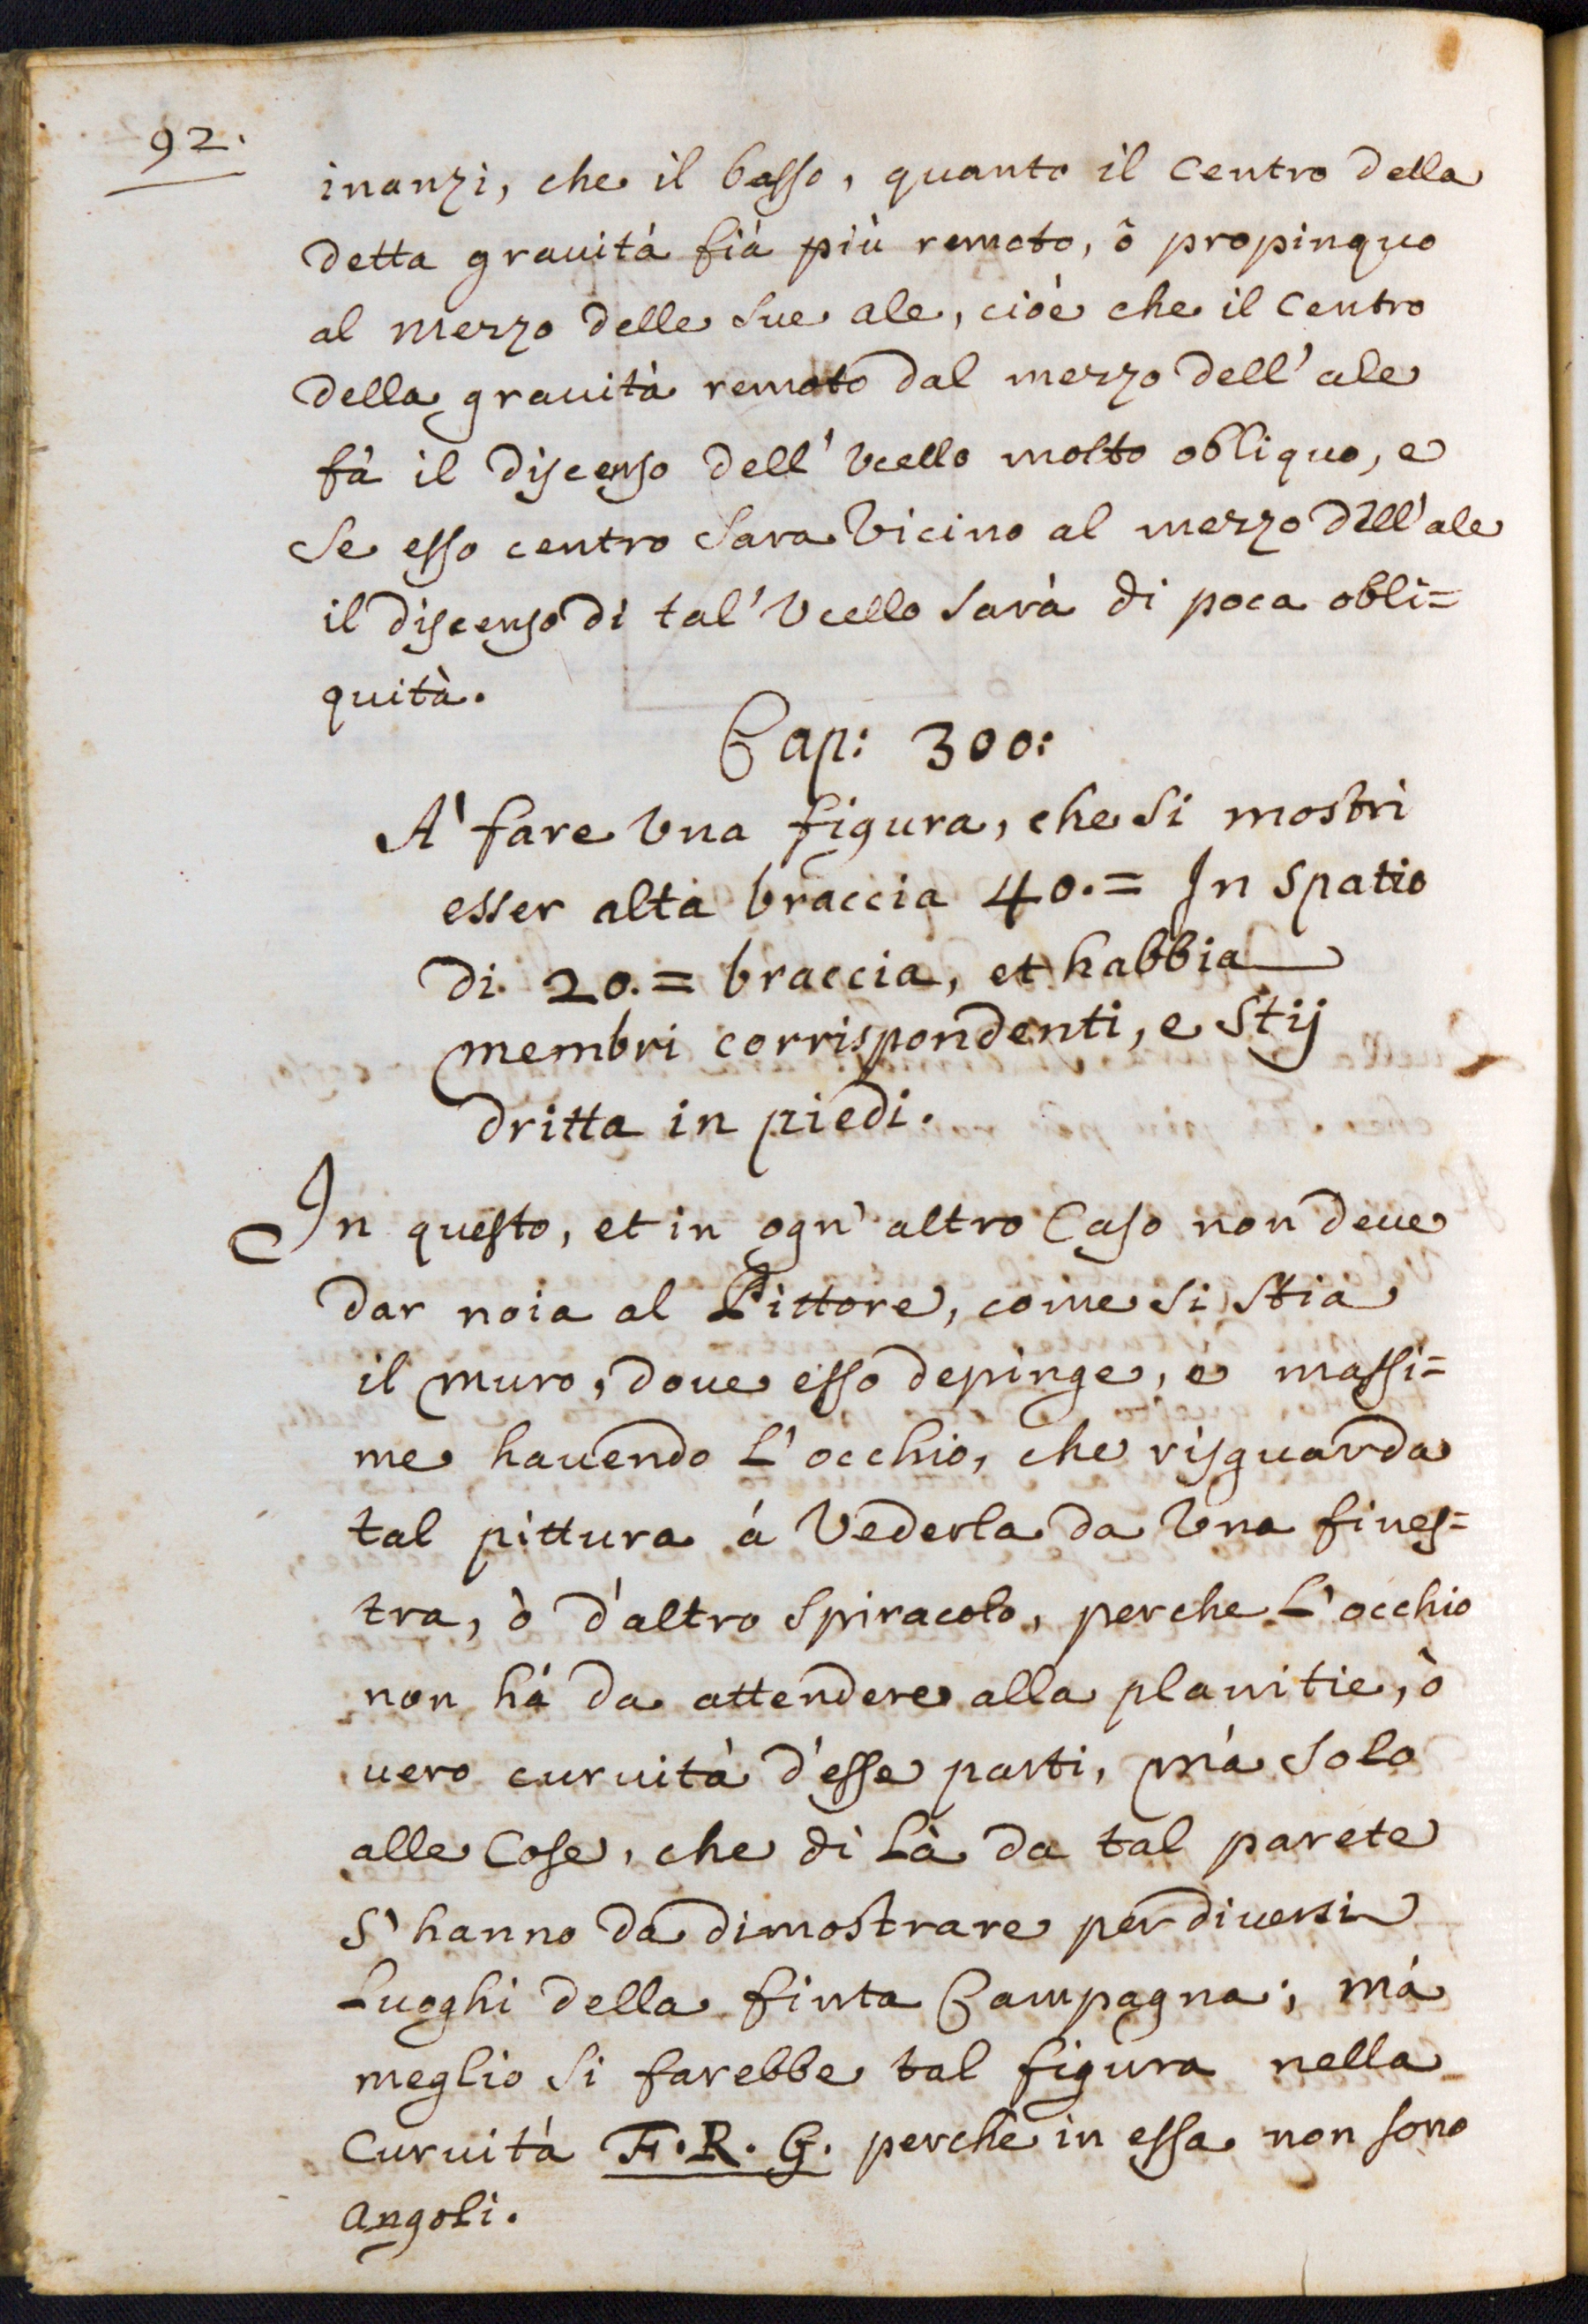 92.
inanzi, che il basso, quanto il centro della
detta grauità fià più remoto, ò propinquo
al mezzo delle sue ale, cioè che il centro
della grauità remoto dal mezzo dell' ale
fà il discenso dell' vcello molto obliquo, e
se esso centro sara vicino al mezzo dell' ale
il discenso di tal' vcello sarà di poca obli=
quità.
Cap: 300:
A' fare vna figura, che si mostri
esser alta braccia 40.= In spatio
di 20.= braccia, et habbia
membri corrispondenti, e stij
dritta in piedi.
In questo, et in ogn' altro caso non deue
dar noia al Pittore, come si stia
il muro, doue esso depinge, e massi=
me hauendo l' occhio, che risguarda
tal pittura á vederla da vna fines=
tra, ò d'altro spiracolo, perche l' occhio
non há da attendere alla planitie, ò
uero curuità d'esse parti, mà solo
alle cose, che di là da tal parete
s' hanno da dimostrare per diuersi
luoghi della finta Campagna; má
meglio si farebbe tal figura nella
curuità F. R. G. perchè in essa non sono
angoli.